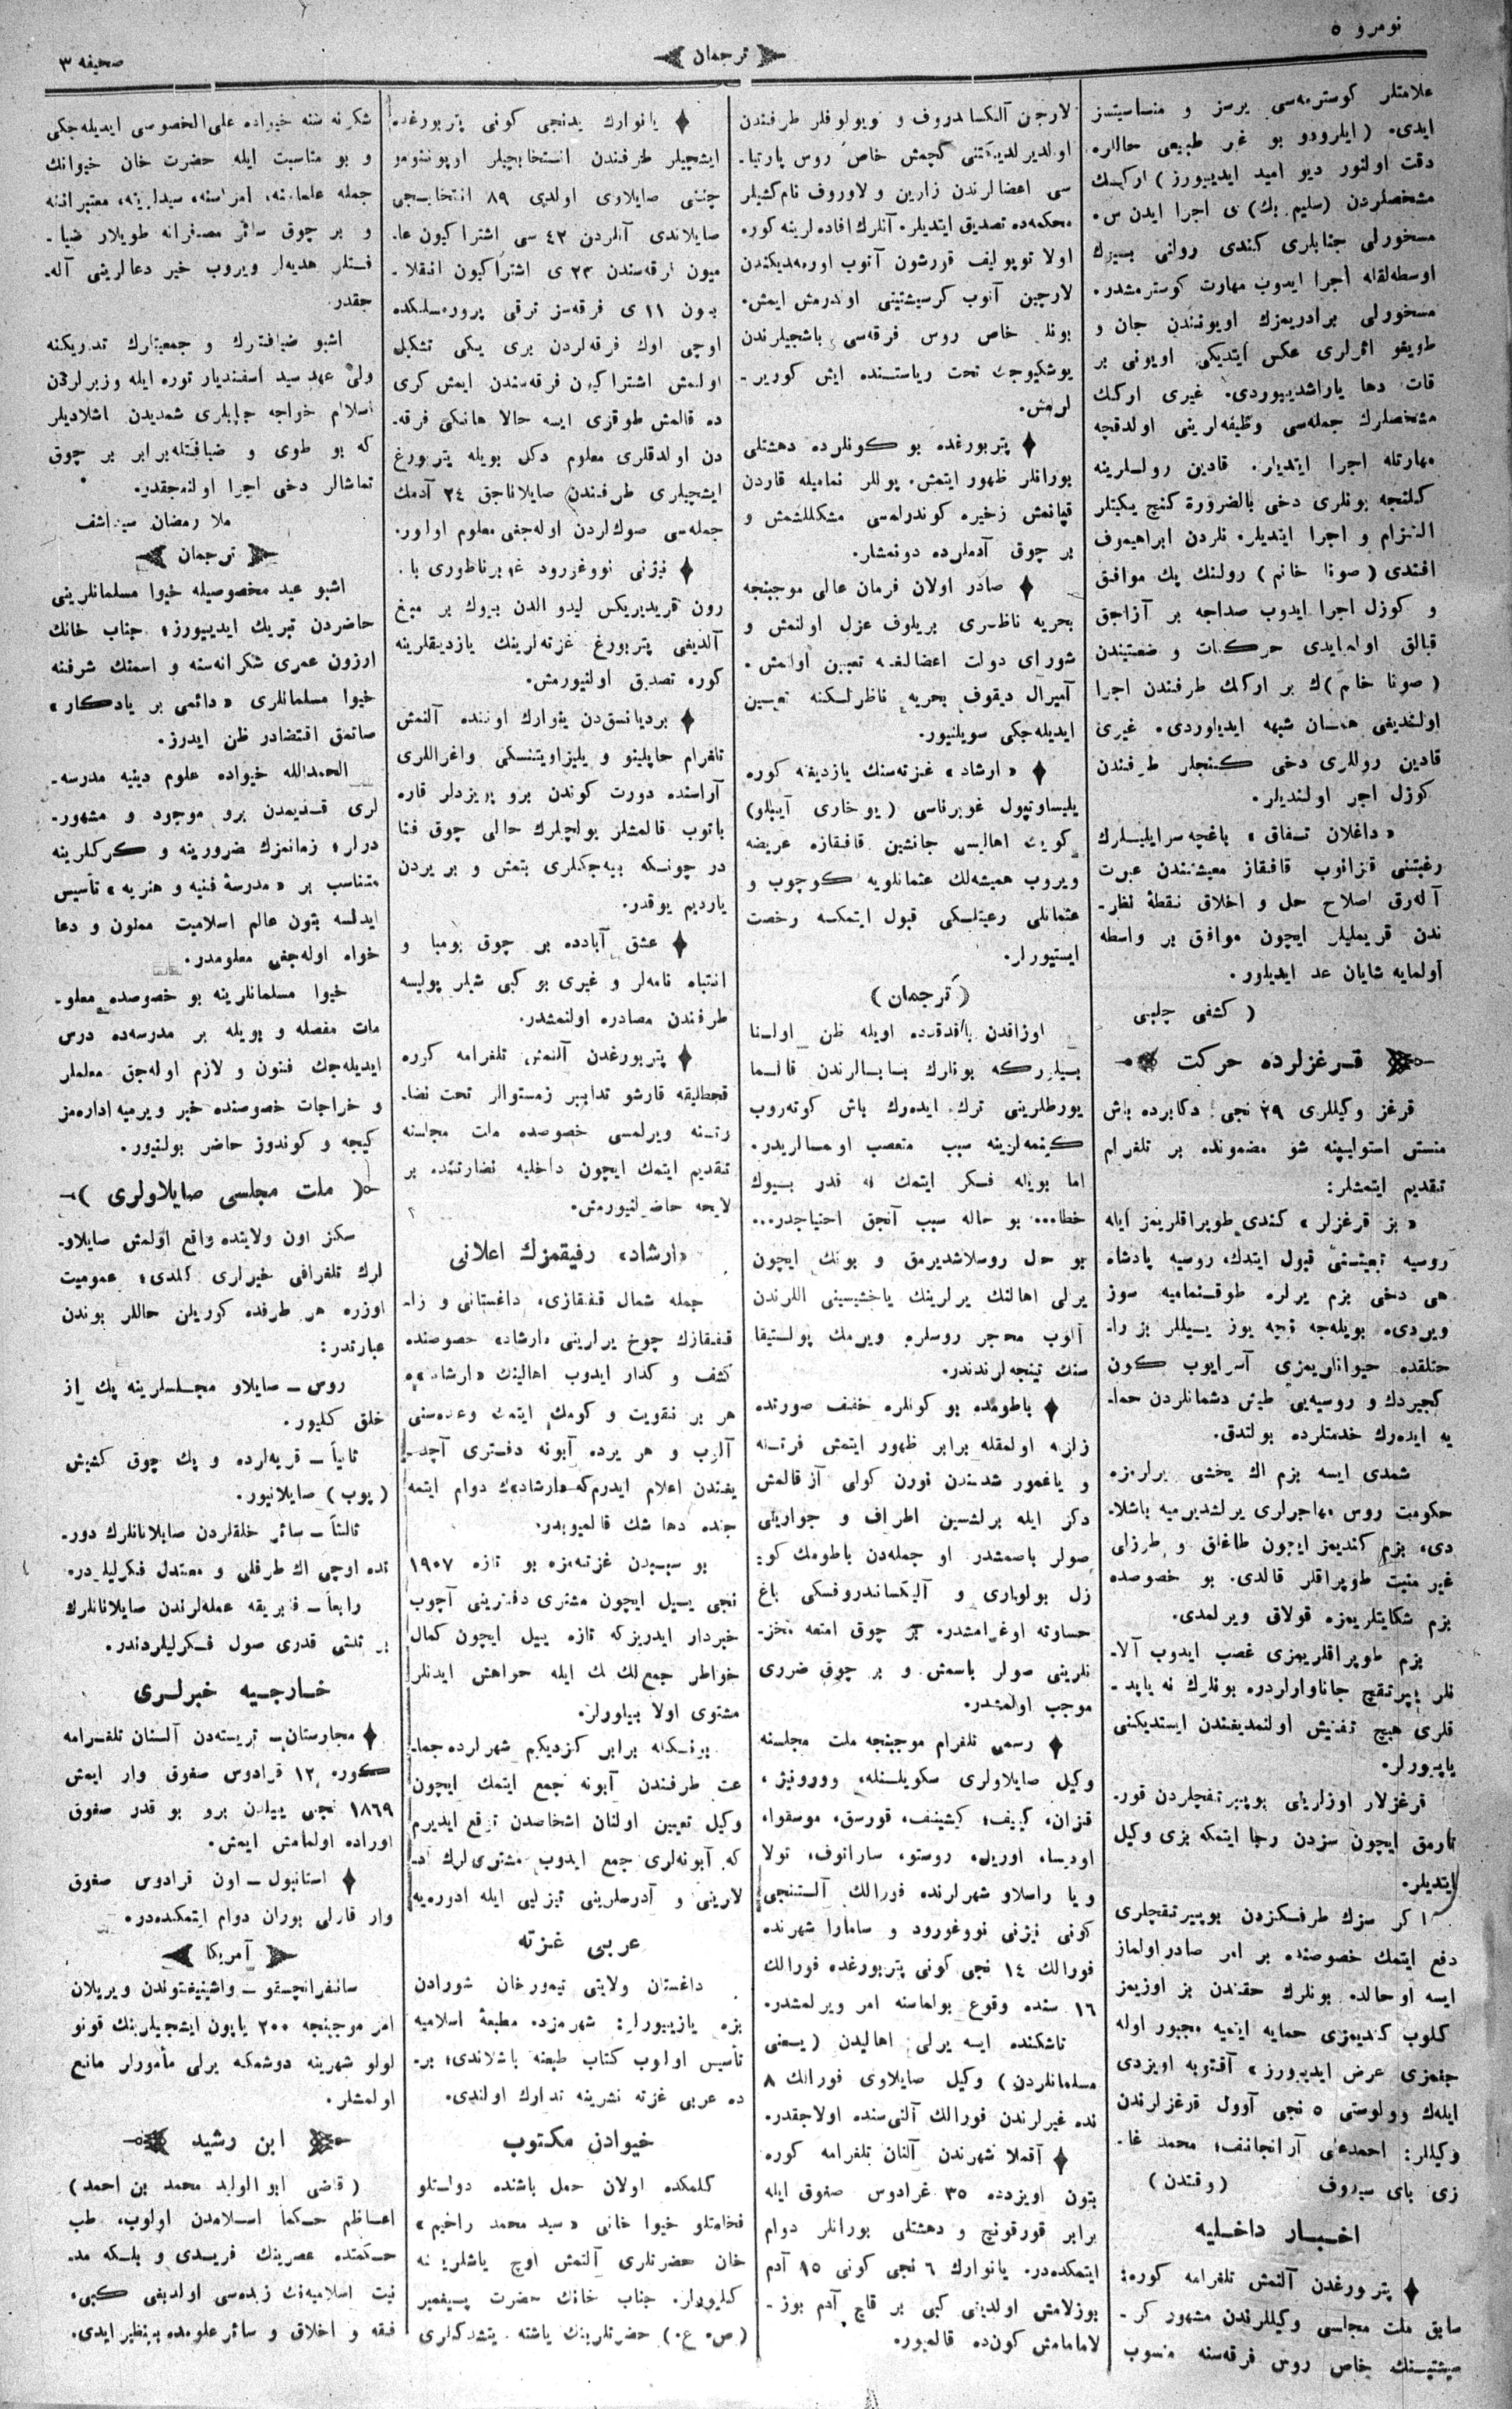 نومرو ٥
ترجمان
صحيفه ٣
علامتلر كوسترمه‌سى يرسز و مناسبتسز
ايدى. (ايلروده بو غير طبيعى حاللره
دقت اولنور ديو اميد ايدييورز) اركك
مشخصلردن (سليم بك) ى اجرا ايدن س.
مسخورلى جنابلرى كندى رولنى بسيرك
اوسطه‌لقله اجرا ايدوب مهارت كوسترمشدر.
مسخورلى برادريمزك اويونندن جان و
طويغو اثرلرى عكس ايتديكى اويونى بر
قات دها ياراشديييوردى. غيرى اركك
مشخصلرك جمله‌سى وظيفه‌لرينى اولدقچه
مهارتله اجرا ايتديلر. قادين روللرينه
كلنجه بونلرى دخى بالضرورة كنج يكيتلر
التزام و اجرا ايتديلر. نلردن ابراهيموف
افندى (صونا خانم) رولنك پك موافق
و كوزل اجرا ايدوب صداجه بر آزاجق
قبالق اولمايدى حركات و وضعيتندن
(صونا خانم)ك بر اركك طرفندن اجرا
اولنديغى همسان شبهه ايدياوردى. غيرى
قادين روللرى دخى كنجلر طرفندن
كوزل اجر اولنديلر.
« داغلان تفاق » باغچه‌سرايليلرك
رغبتنى قزانوب قافقاز معيشتندن عبرت
آله‌رق اصلاح حال و اخلاق نقطهٔ نظر-
ندن قريمليلر ايچون موافق بر واسطه
اولمايه شايان عد ايديلور.
( كشفى چلبى
قرغزلرده حركت
قرغز وكيللرى ٢٩ نجى دكابرده باش
منستر استوليپينه شو مضمونده بر تلغرام
تقديم ايتمشلر:
« بز قرغزلر » كندى طوپراقلريمز ايله
روسيه تبعيتنى قبول ايتدك، روسيه پادشاه
هى دخى بزم يرلره طوقنماميه سوز
ويردى. بويله‌جه نچه يوز ييللر بز را-
حتلقده حيوانلريمزى آسرايوب كون
كچيردك و روسيه‌يى طيش دشمانلردن حما-
يه ايده‌رك خدمتلرده بولندق.
شمدى ايسه بزم اك يخشى يرلرمزه
حكومت روس مهاجرلرى يرلشديرميه باشلا-
دى، بزم كنديمز ايچون طاغلق و طرزلى
غير منبت طوپراقلر قالدى. بو خصوصده
بزم شكايتلريمزه قولاق ويرلمدى.
بزم طوپراقلريمزى غصب ايدوب آلا-
نلر ييرتقيچ جاناوارلردر. بونلرك نه ياپد-
قلرى هيچ تفتيش اولنمديغندن ايستديكنى
ياپيورلر.
قرغزلار اوزلرينى بو ييرتقچلردن قور-
تارمق ايچون سزدن رجا ايتمكه بزى وكيل
ايتديلر.
اكر سزك طرفكزدن بو ييرتقچلرى
دفع ايتمك خصوصنده بر امر صادر اولماز
ايسه او حالده بونلرك حقندن بز اوزيمز
كلوب كنديمزى حمايه ايتميه مجبور اوله
جغمزى عرض ايدييورز » آقتوبه اويزدى
ايله‌ك وولوستى ٥ نجى آوول قرغزلرندن
وكيللر: احمدعلى آرانجانف، محمد غا-
زى باى سيدوف (وقتدن)
اخبار داخليه
پتربورغدن آلنمش تلغرامه كوره:
سابق ملت مجلسى وكيللرندن مشهور كر-
ميشتيننك خاص روس فرقه‌سنه منسوب
لارچن آلكساندروف و توپولوفلر طرفندن
اولديرلديكنى كچمش خاص روس پارتيا-
سى اعضالرندن زارين و لاوروف نام كشيلر
محكمه‌ده تصديق ايتديلر. آنلرك افاده‌لرينه كوره
اولا توپوليف قورشون آتوب اورمديكندن
لارچين آتوب كرسيشتينى اولدرمش ايمش.
بونلر خاص روس فرقه‌سى باشچيلرندن
يوشكيوچ تحت رياستنده ايش كورير-
لرمش.
پتربورغده بو كونلرده دهشتلى
بورانلر ظهور ايتمش. يوللر تماميله قاردن
قپانمش زخيره كوندرلمسى مشكللشمش و
بر چوق آدملرده دونمشلر.
صادر اولان فرمان عالى موجبنجه
بحريه ناظرى بريلوف عزل اولنمش و
شوراى دولت اعضالغنه تعيين اولمش.
آميرال ديقوف بحريه ناظرلكنه تعيين
ايديله‌جكى سويلنيور.
« ارشاد » غزته‌سنك يازديغنه كوره
يليساوتپول غوبرناسى (يوخارى آيبلو)
كويى اهاليسى جانشين قافقازه عريضه
ويروب هميشه‌لك عثمانلويه كوچوب و
عثمانلى رعيتلكى قبول ايتمكه رخصت
ايستيورلر.
(ترجمان)
اوزاقدن باقدقده اويله ظن اولنا
بيليركه بونلرك بابالرندن قالما
يورطلرينى ترك ايده‌رك باش كوتروب
كيتمه‌لرينه سبب متعصب اولمالريدر.
اما بويله فكر ايتمك نه قدر بيوك
خطا... بو حاله سبب آنجق احتياجدر...
بو حال روسلاشديرمق و بونك ايچون
يرلى اهالنك يرلرينك ياخشيسينى اللرندن
آلوب مهاجر روسلره ويرمك پولتيقا
سنك نتيجه‌لرندندر.
باطومده بو كونلرده خفيف صورتده
زلزله اولمقله برابر ظهور ايتمش فرتنه
و ياغمور شدتندن نورن كولى آز قالمش
دكز ايله برلشسين اطراف و جوارينى
صولر باصمشدر او جمله‌دن باطومك كو:
زل بولوارى و آليكساندروفسكى باغ
خساراته اوغرامشدر. بر چوق امتعه مخز-
نلرينى صولر باسمش و بر چوق ضررى
موجب اولمشدر.
رسمى تلغرام موجبنجه ملت مجلسنه
وكيل صايلاولرى سكويلسنله، وورونيژ،
قزان، كييف، كيشينف، قورسق، موسقوا،
اوديسا، اوريل، روستو، ساراتوف، تولا
و ياراسلاو شهرلرنده فورالك آلتنجى
كونى نيژنى نووغورود و سامارا شهرنده
فورالك ١٤ نجى كونى پتربورغده فورالك
١٦ سنده وقوع بولماسنه امر ويرلمشدر.
تاشكنده ايسه يرلى اهاليدن (يعنى
مسلمانلردن) وكيل صايلاوى فورالك ٨
نده غيرلرندن فورالك آلتى سنده اولاجقدر.
آقملا شهرندن آلنان تلغرامه كوره
بتون اويزدده ٣٥ غرادوس صغوق ايله
برابر قورقونچ و دهشتلى بورانلر دوام
ايتمكده‌در. يانوارك ٦ نجى كونى ١٥ آدم
بوزلامش اولدينى كبى بر قاچ آدم بوز-
لامامش كونده قالميور.
يانوارك يدنجى كونى پتربورغده
ايشچيلر طرفندن انتخابچيلر اوپونتومو
چننى صايلاوى اولدى ٨٩ انتخابجى
صايلاندى آنلردن ٤٢ سى اشتراكيون عا-
ميون فرقه‌سندن ٢٣ ى اشتراكيون انقلا-
بيون ١١ ى فرقه‌سز ترقى پرورسلكده
اوچى اوك فرقه‌لردن برى يكى تشكيل
اولنمش اشتراكيون فرقه‌سندن ايمش كرى
ده قالمش طوقزى ايسه حالا هانكى فرقه-
دن اولدقلرى معلوم دكل بويله پتربورغ
ايشچيلرى طرفندن صايلاناجق ٢٤ آدمك
جمله‌سى صوك‌لردن اوله‌جغى معلوم اولور.
نيژنى نووغورود غوبرناطورى با-
رون فريدريكس ليدوالدن بيوك بر مبلغ
آلديغى پتربورغ غزته‌لرينك يازديقلرينه
كوره تصديق اولنيورمش.
برديانسق‌دن ينوارك اوننده آلنمش
تلغرام حاپلينو و يليزاويتنسكى واغزاللرى
آراسنده دورت كوندن برو پويزدلر قاره
باتوب قالمشلر يولچيلرك حالى چوق فنا
در چونكه ييه‌جكلرى بتمش و بر يردن
ياردم يوقدر.
عشق آبادده بر چوق بومبا و
انتباه نامه‌لر و غيرى بو كبى شيلر پوليسه
طرفندن مصادره اولنمشدر.
پتربورغدن آلنمش تلغرامه كوره
قحطليقه قارشو تدابير زمستوالر تحت نضا-
رتنه ويرلمسى خصوصده ملت مجلسنه
تقديم ايتمك ايچون داخليه نضارتنده بر
لايحه حاضرلنيورمش.
«ارشاد» رفيقمزك اعلانى
جمله شمال قفقازى، داغستانى و زا-
قفقازك چوخ يرلرينى «ارشاد» خصوصنده
كشف و كذار ايدوب اهالينك «ارشاد»ه
هر بر تقويت و كومك ايتمك وعده‌سنى
آلوب و هر يرده آبونه دفترى آچد-
يغندن اعلام ايدرم كه «ارشاد»ك دوام ايتمه
جنده دها شك قالميوبدر.
بو سببدن غزته‌مزه بو تازه ١٩٠٧
نجى ييل ايچون مشترى دفترينى آچوب
خبردار ايدريز كه تازه ييل ايچون كمال
خواطر جمع‌لك ايله خواهش ايدنلر
مشترى اولا بيلورلر.
بونكله برابر كزديكم شهرلرده جما-
عت طرفندن آبونه جمع ايتمك ايچون
وكيل تعيين اولنان اشخاصدن توقع ايديرم
كه آبونه‌لرى جمع ايدوب مشترى‌لرك آد-
لارينى و آدرسلرينى تيزليى ايله ادوره‌يه
عربى غزته
داغستان ولايتى تيمورخان شورادن
بزه يازييورلر: شهرمزده مطبعهٔ اسلاميه
تأسيس اولوب كتاب طبعنه باشلاندى؛ بر-
ده عربى غزته نشرينه تدارك اولندى.
خيوادن مكتوب
كلمكده اولان حمل باشنده دولتلو
فخامتلو خيوا خانى « سيد محمد راحيم »
خان حضرتلرى آلتمش اوچ ياشلرينه
كليورلر. جناب خانك حضرت پيغمبر
(ص. ع.) حضرتلرينك ياشنه يتشدكلرى
شكرنه سنه خيواده على‌الخصوصى ايديله‌جكى
و بو مناسبت ايله حضرت خان خيوانك
جمله علماسنه، امراسنه، سيدلرينه، معتبراننه
و بر چوق سائر مسافرانه طويلار ضيا-
فتلر هديه‌لر ويروب خير دعالرينى آله-
جقدر.
اشبو ضيافتلرك و جمعيتلرك تداريكنه
ولى عهد سيد اسفنديار توره ايله وزيرلردن
اسلام خواجه جنابلرى شمديدن اشلاديلر
كه بو طوى و ضيافتله برابر بر چوق
تماشالر دخى اجرا اولنه‌جقدر.
ملا رمضان
ترجمان
اشبو عيد مخصوصيله خيوا مسلمانلرينى
حاضردن تبريك ايدييورز؛ جناب خانك
اوزون عمرى شكرانه‌سنه و اسمنك شرفنه
خيوا مسلمانلرى « دائمى بر يادكار »
صاتمق اقتضادر ظن ايدرز.
الحمدالله خيواده علوم دينيه مدرسه-
لرى قديمدن برو موجود و مشهور-
درلر؛ زمانمزك ضرورينه و كركلرينه
متناسب بر « مدرسهٔ فنيه و هنريه » تأسيس
ايدلسه بتون عالم اسلاميت ممنون و دعا
خواه اوله‌جغى معلومدر.
خيوا مسلمانلرينه بو خصوصده معلو-
مات مفصله و بويله بر مدرسه‌ده درس
ايديله‌جك فنون و لازم اوله‌جق معلملر
و خراجات خصوصنده خبر ويرميه اداره‌مز
كيجه و كوندوز حاضر بولنيور.
( ملت مجلسى صايلاولرى )
سكز اون ولايتده واقع اولمش صايلاو-
لرك تلغرافى خبرلرى كلدى؛ عموميت
اوزره هر طرفده كوريلن حاللر بوندن
عبارتدر:
روس – صايلاو مجلسلرينه پك از
خلق كليور.
ثانياً – قريه‌لرده و پك چوق كشيش
(پوپ) صايلانيور.
ثالثاً – سائر خلقلردن صايلانانلرك دور-
تده اوچى اك طرفلى و معتدل فكرليلردر.
رابعاً – فبريقه عمله‌لرندن صايلانانلرك
بر ثلثى قدرى صول فكرليلردندر.
خارجيه خبرلرى
مجارستان – تريسته‌دن آلنان تلغرامه
كوره ١٢ قرادوس صغوق وار ايمش
١٨٦٩ نجى ييلدن برو بو قدر صغوق
اوراده اولمامش ايمش.
استانبول – اون قرادوس صغوق
وار قارلى بوران دوام ايتمكده‌در.
آمريكا
سانفرانچسقو – واشينغتوندن ويريلان
امر موجبنجه ٢٠٠ ياپون ايشچيلرينك قونو
لولو شهرينه دوشمكه يرلى مأمورلر مانع
اولمشلر.
ابن رشيد
(قاضى ابو الوليد محمد بن احمد)
اعاظم حكما اسلامدن اولوب، طب
حكمتده عصرينك فريدى و بلكه مد-
نيت اسلاميه‌نك زبده‌سى اولديغى كبى،
فقه و اخلاق و سائر علومده بينظير ايدى.